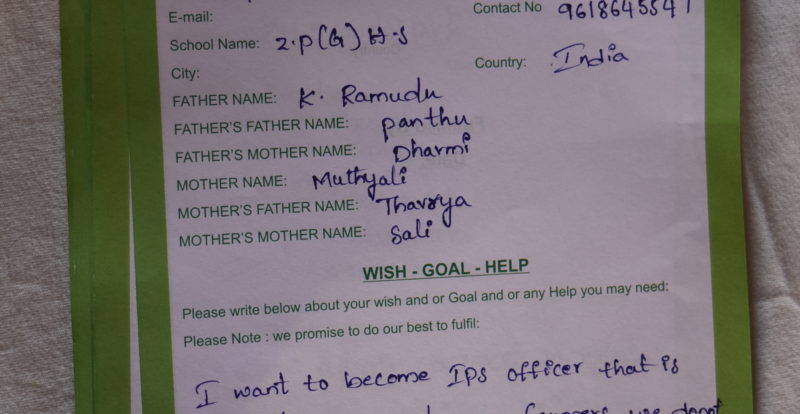 E-mail:
Contact No 9618645541
School Name: Z.P(G) H.S
City:
Country: India
FATHER NAME: K. Ramudu
FATHER'S FATHER NAME: panthu
FATHER'S MOTHER NAME: Dharmi
MOTHER NAME: Muthyali
MOTHER'S FATHER NAME: Thavrya
MOTHER'S MOTHER NAME: Sali
WISH - GOAL - HELP
Please write below about your wish and or Goal and or any Help you may need:
Please Note : we promise to do our best to fulfil:
I want to become IPS officer that is